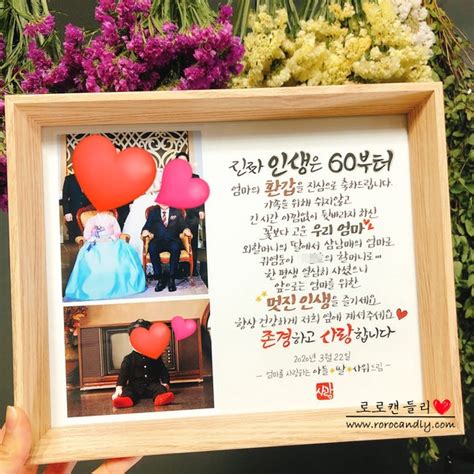 진짜 인생은 60부터
엄마의 환갑을 진심으로 축하드립니다.
가족을 위해 쉬지않고
긴 시간 아낌없이 뒷바라지 하신
꽃보다 고운 우리 엄마
외할머니의 딸에서 삼남매의 엄마로
귀염둥이 의 할머니로
한 평생 열심히 사셨으니
앞으로는 엄마를 위한
멋진 인생을 즐기세요
항상 건강하게 저희 옆에 계셔주세요
존경하고 사랑합니다
2020년 3월 22일
- 엄마를 사랑하는 아들 딸 사위드림 -
사랑
로로캔들리
www.rorocandly.com